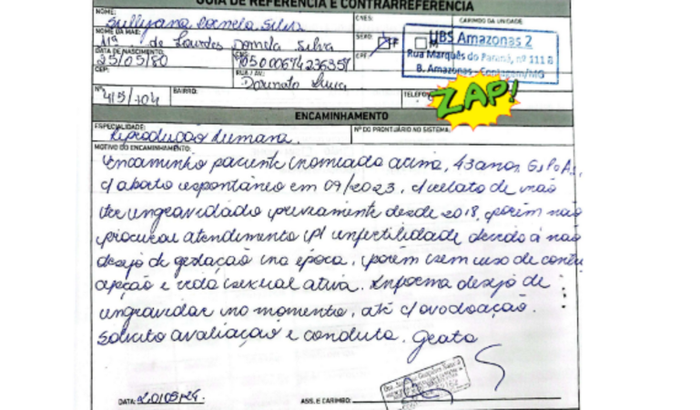 GUIA DE REFERÊNCIA E CONTRARREFERÊNCIA
NOME:
CNES:
CARIMBO DA UNIDADE
NOME DA MÃE:
Mª de Lourdes Daniela Silva
SEXO:
UBS Amazonas 2
Rua Marquês do Paraná, nº 111 B
B. Amazonas - Contagem/MG
DATA DE NASCIMENTO:
25/05/80
CEP:
RUA / AV.:
Nº
BAIRRO:
TELEFO
ZAP!
ENCAMINHAMENTO
ESPECIALIDADE:
Reprodução humana.
Nº DO PRONTUÁRIO NO SISTEMA
MOTIVO DO ENCAMINHAMENTO:
Encaminho paciente nomiado acima, 43 anos, G1P0A1,
c/ aborto espontâneo em 09/2023, c/ relato de não
ter engravidado previamente desde 2018, porém não
procurou atendimento p/ infertilidade devido à não
desejo de gestação na época, porém sem uso de contra
cepção e vida sexual ativa. Informa desejo de
engravidar no momento, até c/ ovodoação.
Solicito avaliação e conduta. Grata
DATA:
ASS. E CARIMBO: